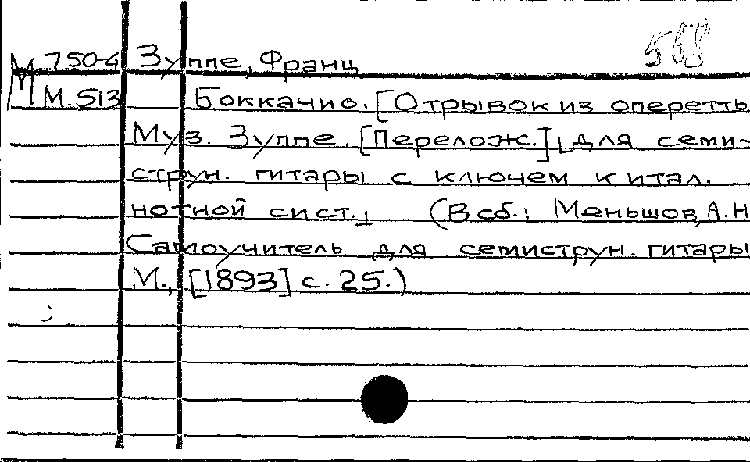 М 750-4 Зуппе, Франц 568
М 513 Боккачио. [Отрывок из оперетты
Муз. Зуппе. [Перелож.] для семи-
струн. гитары с ключем к итал.
нотной сист. (В сб.: Меньшов, А.Н
Самоучитель для семиструн. гитары
М., [1893] с. 25.)